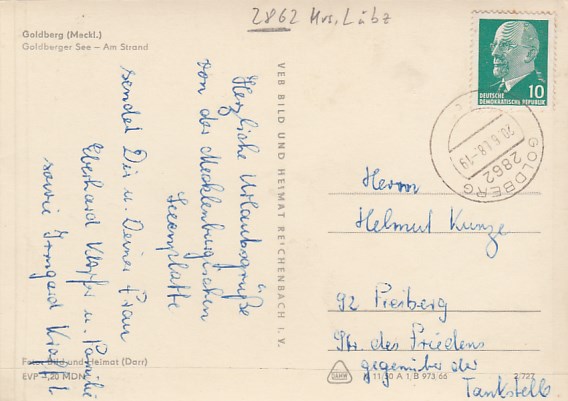 2862 Krs. Lübz
Goldberg (Meckl.)
Goldberger See — Am Strand
DEUTSCHE
DEMOKRATISCHE REPUBLIK
10
GOLDBERG
2862
20.6.68-19
Herzliche Urlaubsgrüße
von der Mecklenburgischen
Seenplatte
sendet Dir u. Deiner Frau
Eberhard u. Familie
sowie Irmgard
VEB BILD UND HEIMAT REICHENBACH I. V.
Herrn
Helmut Kunze
92 Freiberg
Str. des Friedens
gegenüber der
Tankstelle
Foto: Bild und Heimat (Darr)
EVP 0,20 MDN
11/30 A 1/B 973/66
2/727